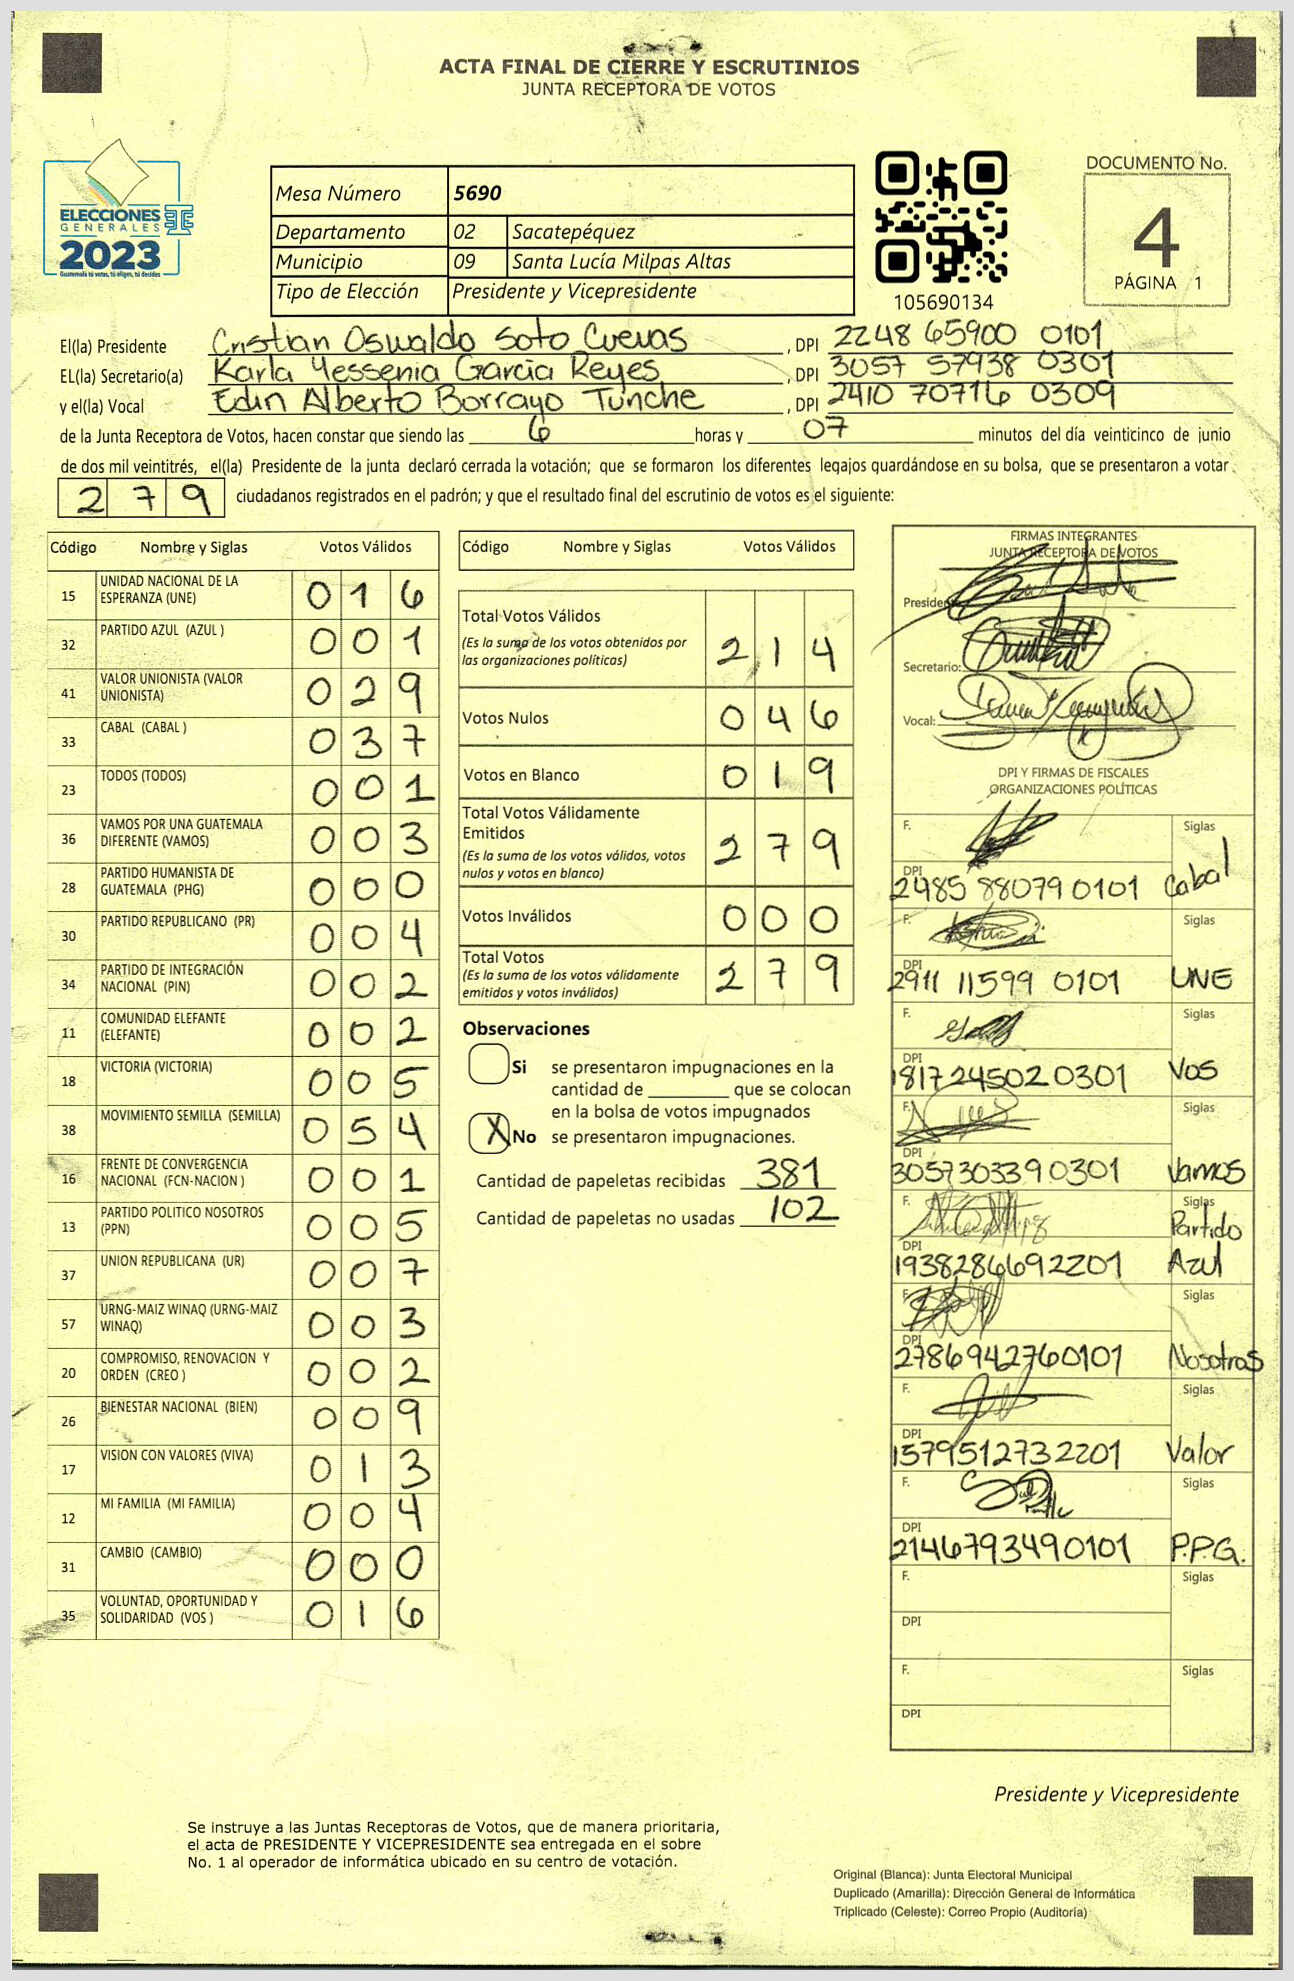 ACTA FINAL DE CIERRE Y ESCRUTINIOS
JUNTA RECEPTORA DE VOTOS
ELECCIONES
GENERALES
2023
Guatemala tú votas, tú eliges, tú decides
Mesa Número 5690
Departamento 02 Sacatepéquez
Municipio 09 Santa Lucía Milpas Altas
Tipo de Elección Presidente y Vicepresidente
105690134
DOCUMENTO No.
4
PÁGINA 1
El(la) Presidente Cristian Oswaldo Soto Cuevas, DPI 2248 65900 0101
EL(la) Secretario(a) Karla Yessenia Garcia Reyes, DPI 3057 57938 0301
y el(la) Vocal Edin Alberto Borrayo Tunche, DPI 2410 70716 0309
de la Junta Receptora de Votos, hacen constar que siendo las 6 horas y 07 minutos del día veinticinco de junio
de dos mil veintitrés, el(la) Presidente de la junta declaró cerrada la votación; que se formaron los diferentes legajos guardándose en su bolsa, que se presentaron a votar
279 ciudadanos registrados en el padrón; y que el resultado final del escrutinio de votos es el siguiente:
Código Nombre y Siglas Votos Válidos
15 UNIDAD NACIONAL DE LA
ESPERANZA (UNE) 016
32 PARTIDO AZUL (AZUL ) 001
41 VALOR UNIONISTA (VALOR
UNIONISTA) 029
33 CABAL (CABAL ) 037
23 TODOS (TODOS) 001
36 VAMOS POR UNA GUATEMALA
DIFERENTE (VAMOS) 003
28 PARTIDO HUMANISTA DE
GUATEMALA (PHG) 000
30 PARTIDO REPUBLICANO (PR) 004
34 PARTIDO DE INTEGRACIÓN
NACIONAL (PIN) 002
11 COMUNIDAD ELEFANTE
(ELEFANTE) 002
18 VICTORIA (VICTORIA) 005
38 MOVIMIENTO SEMILLA (SEMILLA) 054
16 FRENTE DE CONVERGENCIA
NACIONAL (FCN-NACION ) 001
13 PARTIDO POLITICO NOSOTROS
(PPN) 005
37 UNION REPUBLICANA (UR) 007
57 URNG-MAIZ WINAQ (URNG-MAIZ
WINAQ) 003
20 COMPROMISO, RENOVACION Y
ORDEN (CREO ) 002
26 BIENESTAR NACIONAL (BIEN) 009
17 VISION CON VALORES (VIVA) 013
12 MI FAMILIA (MI FAMILIA) 004
31 CAMBIO (CAMBIO) 000
35 VOLUNTAD, OPORTUNIDAD Y
SOLIDARIDAD (VOS ) 016
Código Nombre y Siglas Votos Válidos
Total Votos Válidos
(Es la suma de los votos obtenidos por
las organizaciones políticas) 214
Votos Nulos 046
Votos en Blanco 019
Total Votos Válidamente
Emitidos
(Es la suma de los votos válidos, votos
nulos y votos en blanco) 279
Votos Inválidos 000
Total Votos
(Es la suma de los votos válidamente
emitidos y votos inválidos) 279
Observaciones
Si se presentaron impugnaciones en la
cantidad de ________ que se colocan
en la bolsa de votos impugnados
X No se presentaron impugnaciones.
Cantidad de papeletas recibidas 381
Cantidad de papeletas no usadas 102
FIRMAS INTEGRANTES
JUNTA RECEPTORA DE VOTOS
Presidente
Secretario:
Vocal:
DPI Y FIRMAS DE FISCALES
ORGANIZACIONES POLÍTICAS
F. Siglas
DPI
2485 88079 0101 Cabal
F. Siglas
DPI
2911 11599 0101 UNE
F. Siglas
DPI
1817 24502 0301 VOS
F. Siglas
DPI
3057303390301 Vamos
F. Siglas
Partido
DPI
1938286692201 Azul
F. Siglas
DPI
2786942760101 Nosotros
F. Siglas
DPI
1579512732201 Valor
F. Siglas
DPI
2146793490101 P.P.G.
F. Siglas
DPI
F. Siglas
DPI
Presidente y Vicepresidente
Se instruye a las Juntas Receptoras de Votos, que de manera prioritaria,
el acta de PRESIDENTE Y VICEPRESIDENTE sea entregada en el sobre
No. 1 al operador de informática ubicado en su centro de votación.
Original (Blanca): Junta Electoral Municipal
Duplicado (Amarilla): Dirección General de Informática
Triplicado (Celeste): Correo Propio (Auditoría)